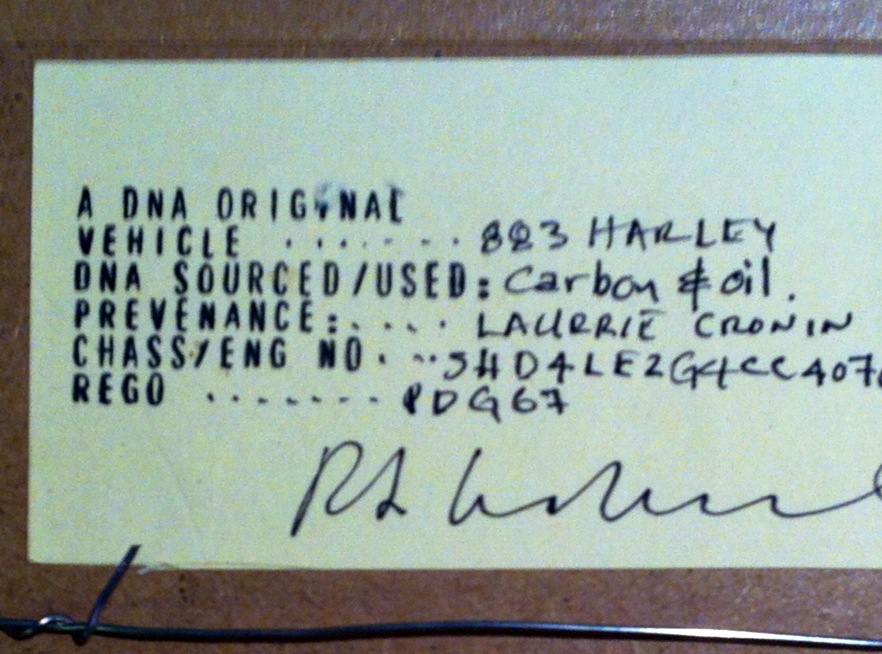 A DNA ORIGINAL
VEHICLE ....... 883 HARLEY
DNA SOURCED/USED: Carbon & oil.
PREVENANCE:.... LAURRIE CRONIN
CHASS/ENG NO. ..5HD4LE2G4CC407
REGO ........ PDG67